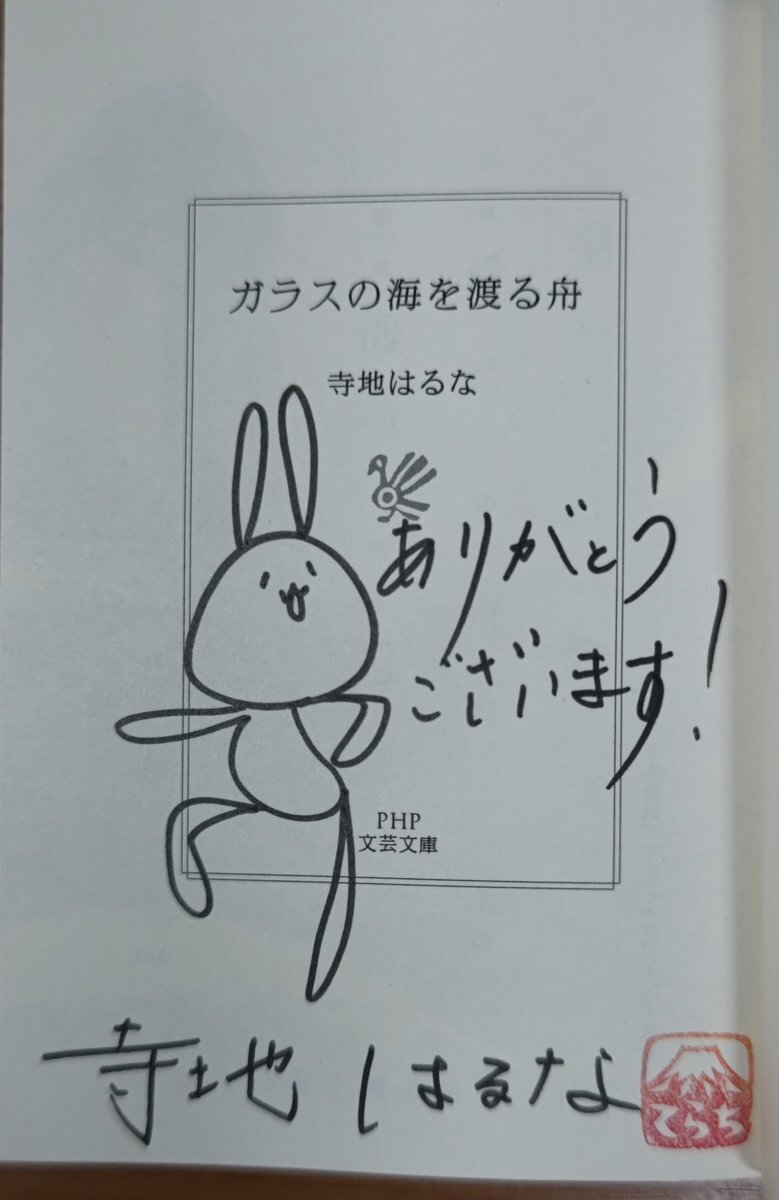 ガラスの海を渡る舟
寺地はるな
ありがとう
ございます!
PHP
文芸文庫
寺地はるな
てらち